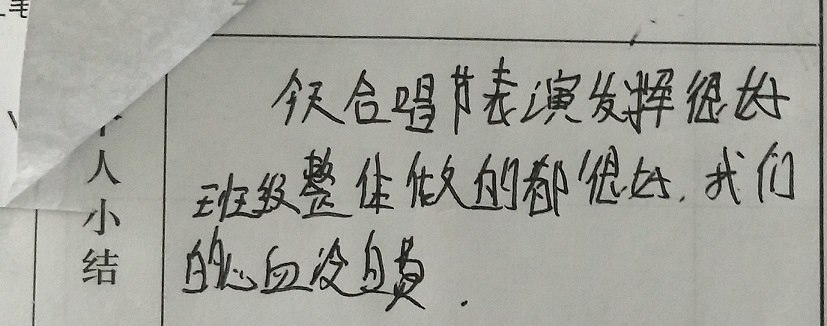 今天合唱节表演发挥很好
班级整体做的都很好.我们
的心血没白费.
人
小
结